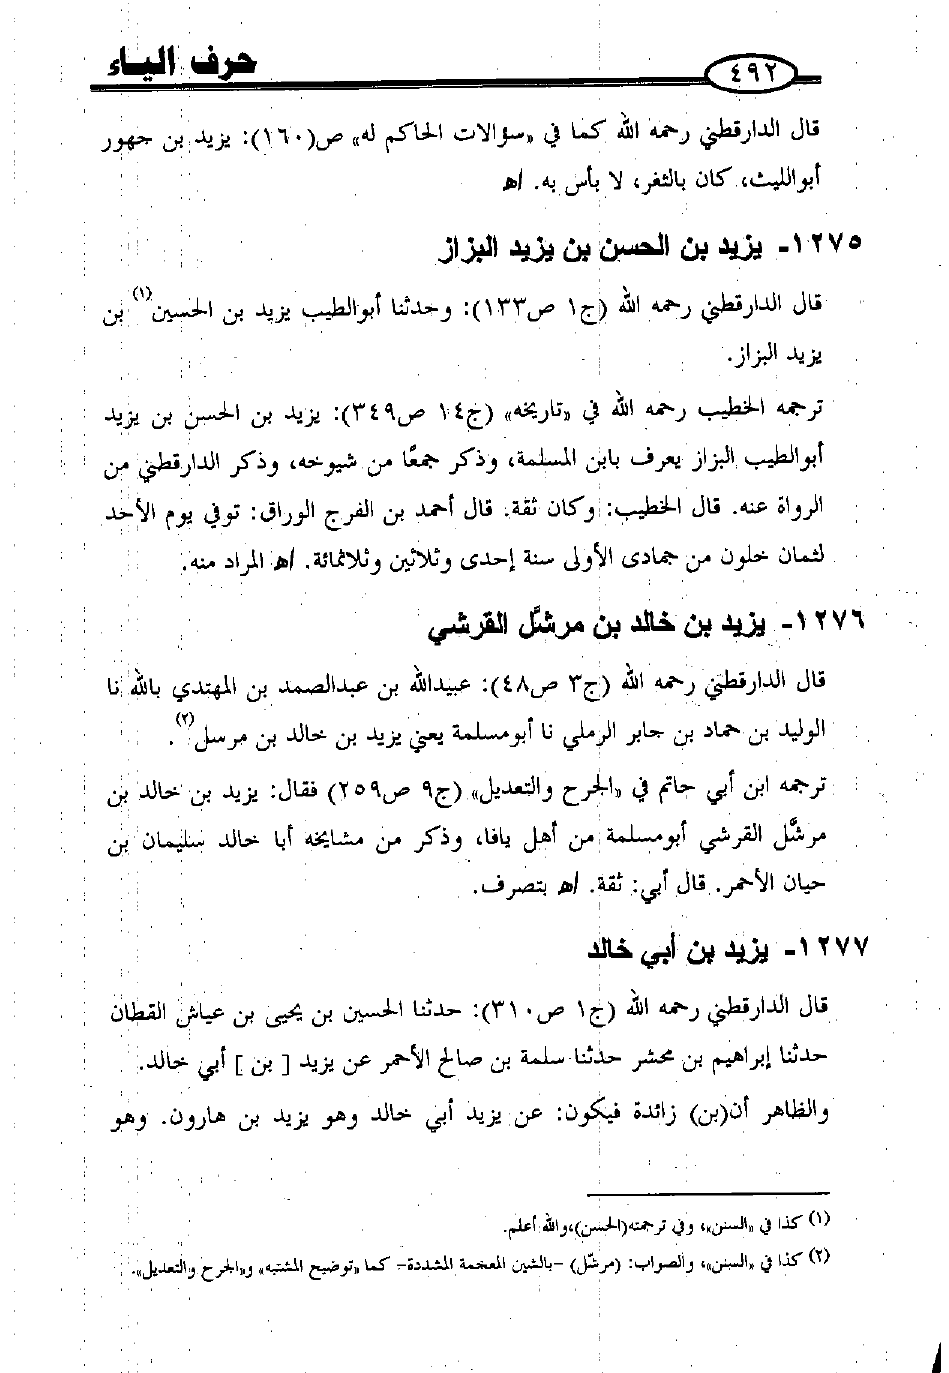 حرف الياء
٤٩٢
قال الدارقطني رحمه الله كما في «سؤالات الحاكم له» ص(١٦٠): يزيد بن جهور
أبوالليث، كان بالثغر، لا بأس به. اﻫ
١٢٧٥- يزيد بن الحسن بن يزيد البزاز
قال الدارقطني رحمه الله (ج١ ص١٣٣): وحدثنا أبوالطيب يزيد بن الحسين(١) بن
يزيد البزاز.
ترجمه الخطيب رحمه الله في «تاريخه» (ج١٤ ص٣٤٩): يزيد بن الحسن بن يزيد
أبوالطيب البزاز يعرف بابن المسلمة، وذكر جمعًا من شيوخه، وذكر الدارقطني من
الرواة عنه. قال الخطيب: وكان ثقة. قال أحمد بن الفرج الوراق: توفي يوم الأحد
لثمان خلون من جمادى الأولى سنة إحدى وثلاثين وثلاثمائة. اﻫ المراد منه.
١٢٧٦- يزيد بن خالد بن مرشَّل القرشي
قال الدارقطني رحمه الله (ج٣ ص٤٨): عبيدالله بن عبدالصمد بن المهتدي بالله نا
الوليد بن حماد بن جابر الرملي نا أبومسلمة يعني يزيد بن خالد بن مرسل(٢).
ترجمه ابن أبي حاتم في «الجرح والتعديل» (ج٩ ص٢٥٩) فقال: يزيد بن خالد بن
مرشَّل القرشي أبومسلمة من أهل يافا، وذكر من مشايخه أبا خالد سليمان بن
حيان الأحمر. قال أبي: ثقة. اﻫ بتصرف.
١٢٧٧- يزيد بن أبي خالد
قال الدارقطني رحمه الله (ج١ ص٣١٠): حدثنا الحسين بن يحيى بن عياش القطان
حدثنا إبراهيم بن محشر حدثنا سلمة بن صالح الأحمر عن يزيد [ بن ] أبي خالد.
والظاهر أن(بن) زائدة فيكون: عن يزيد أبي خالد وهو يزيد بن هارون. وهو
(١) كذا في «السنن»، وفي ترجمته(الحسن)،والله أعلم.
(٢) كذا في «السنن»، والصواب: (مرشّل) -بالشين المعجمة المشددة- كما «توضيح المشتبه» و«الجرح والتعديل».